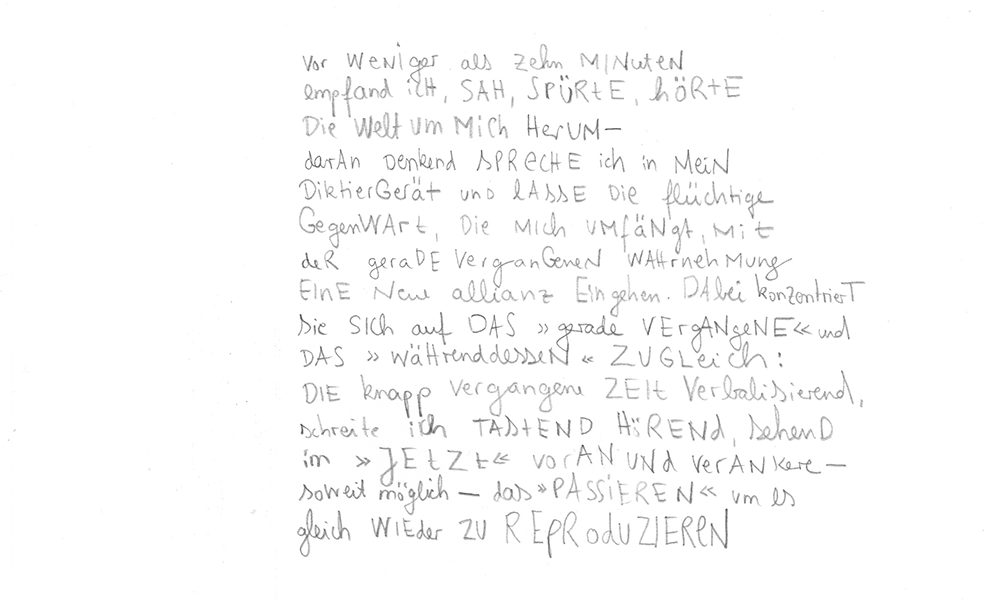 Vor WeNiger als Zehn MINuteN
empfand iCH, SAH, SPÜRtE, höRtE
Die Welt um MiCh HerUM—
darAn Denkend SPReCHE ich in MeiN
DiktierGerät und lASSE Die flüchtige
GegenWArt, Die Mich UMfäNgt, Mit
deR geraDE VerganGeneN WAHrnehMung
EInE Neue allianz Eingehen. DAbei konzentrierT
Sie SICh auf DAS »gerade VErgANgeNE« und
DAS »wäHrenddesseN« ZUGLeich:
DIE knapp Vergangene ZEIt Verbalisierend,
schreite ich TAStEND HöRENd, SehenD
im »JEtZt« vorAN UNd VerANkere—
soweit möglich — das »PASSIEREN« um es
gleich WIEder ZU REpRoduZIEReN